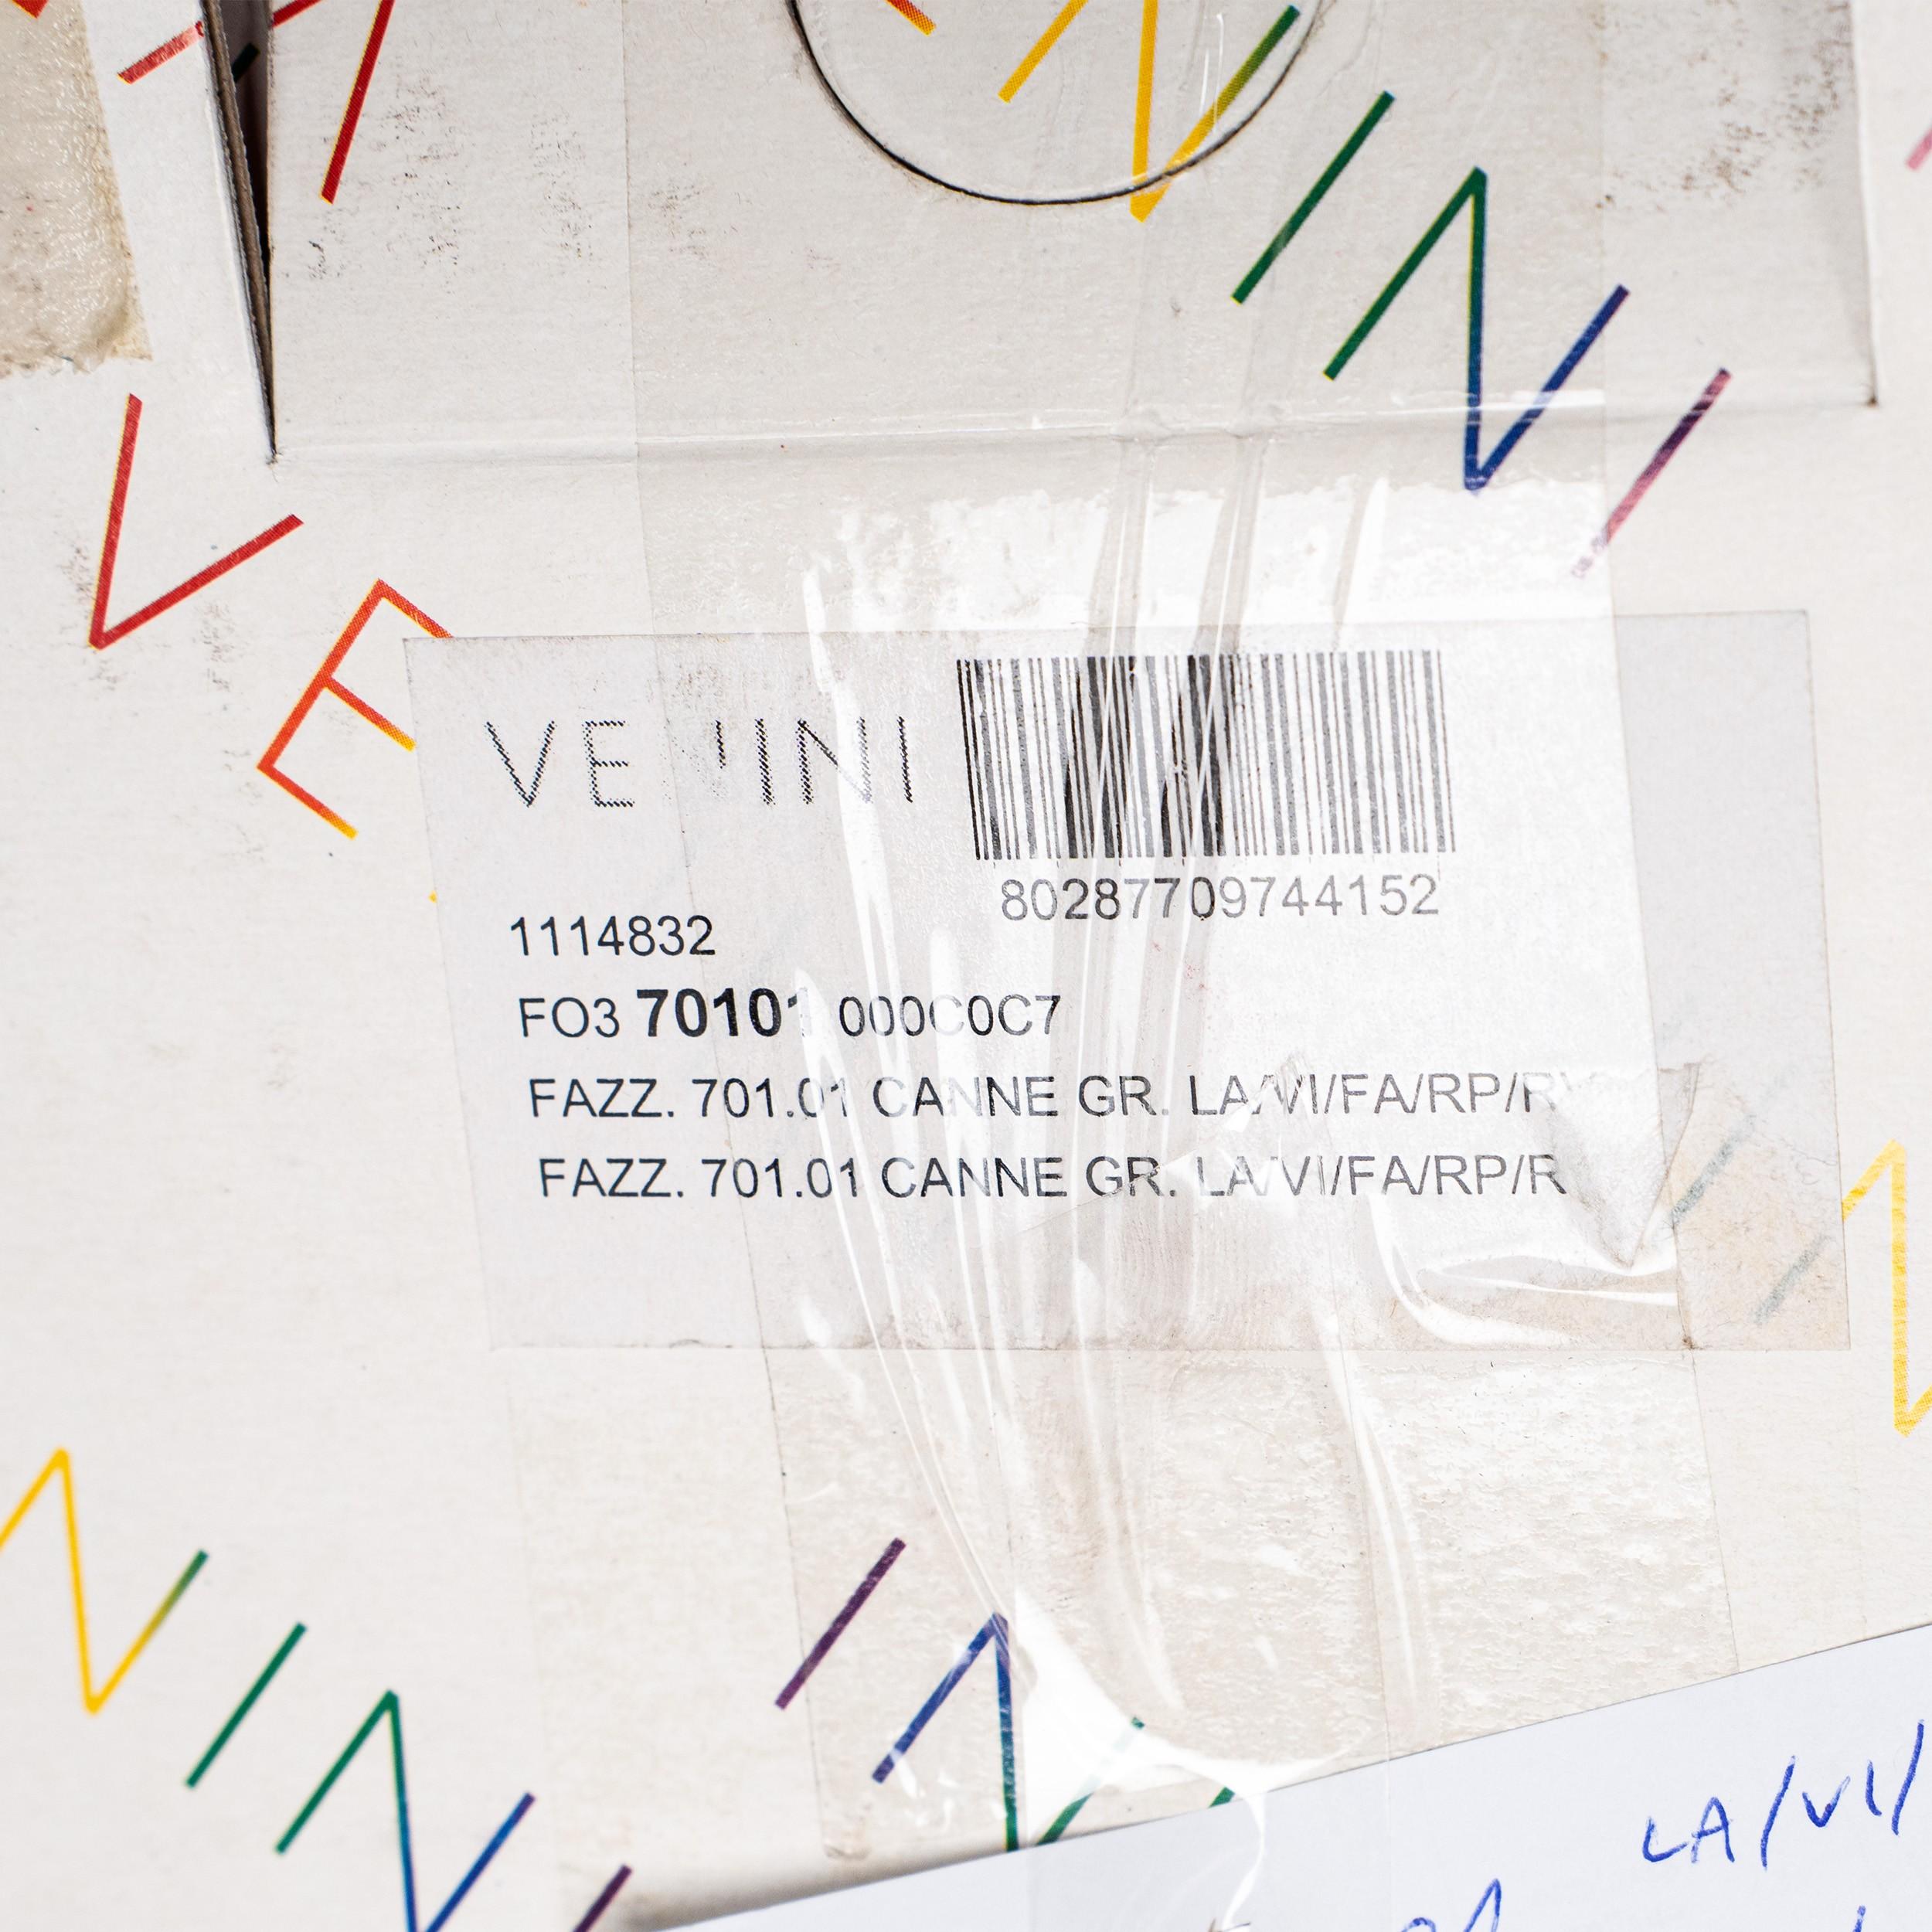 VENINI
VENINI
80287709744152
1114832
FO3 70101 000C0C7
FAZZ. 701.01 CANNE GR. LA/VI/FA/RP/RV
FAZZ. 701.01 CANNE GR. LA/VI/FA/RP/R
LA/VI/